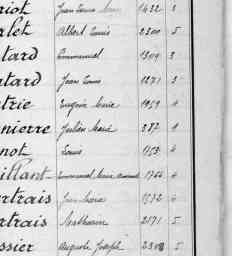 riot Jean Louis Marie 1422 3
alet Albert Louis 2300 5
tard Emmanuel 1309 3
utard Jean Louis 1271 3
trie Eugène Marie 1959 4
nierre Julien Marie 387 1
not Louis 1153 4
illant Emmanuel Marie 1766 4
rtrais Jean Marie 1572 4
rtrais Mathurin 2171 5
ssier Auguste Joseph 2308 5